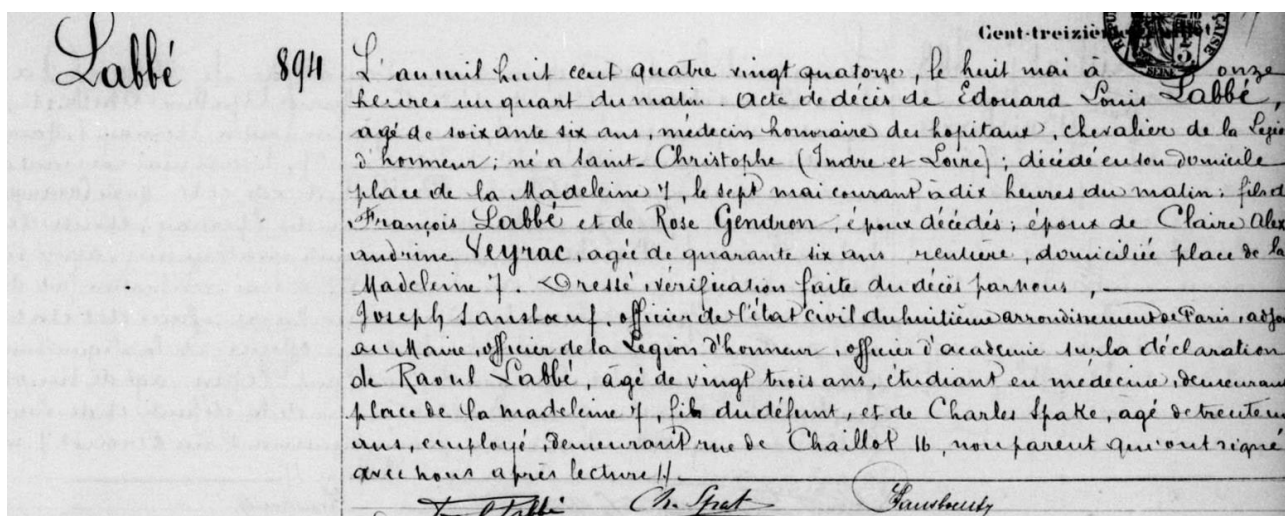 Cent-treizième
Labbé 894 L'an mil huit cent quatre vingt quatorze, le huit mai à onze
heures un quart du matin. Acte de décès de Edouard Louis Labbé,
agé de soixante six ans, médecin honoraire des hopitaux, chevalier de la Légio
d'honneur, né à Saint-Christophe (Indre et Loire); décédé en son domicile
place de la Madeleine 7, le sept mai courant à dix heures du matin; fils d
François Labbé et de Rose Gendron, époux décédés; époux de Claire Alex
andrine Veyrac, agée de quarante six ans, rentière, domiciliée place de la
Madeleine 7. Dressé vérification faite du décès par nous,
Joseph officier de l'état civil du huitième arrondissement de Paris, adjoi
au Maire, officier de la Légion d'honneur, officier d'académie sur la déclaration
de Raoul Labbé agé de vingt trois ans, étudiant en médecine demeurant
place de la madeleine 7, fils du défunt, et de Charles Spake, agé de trente un
ans employé, demeurant rue de Chaillot 16, non parent, qui ont signé
avec nous après lecture //
Labbé Ch. Spak